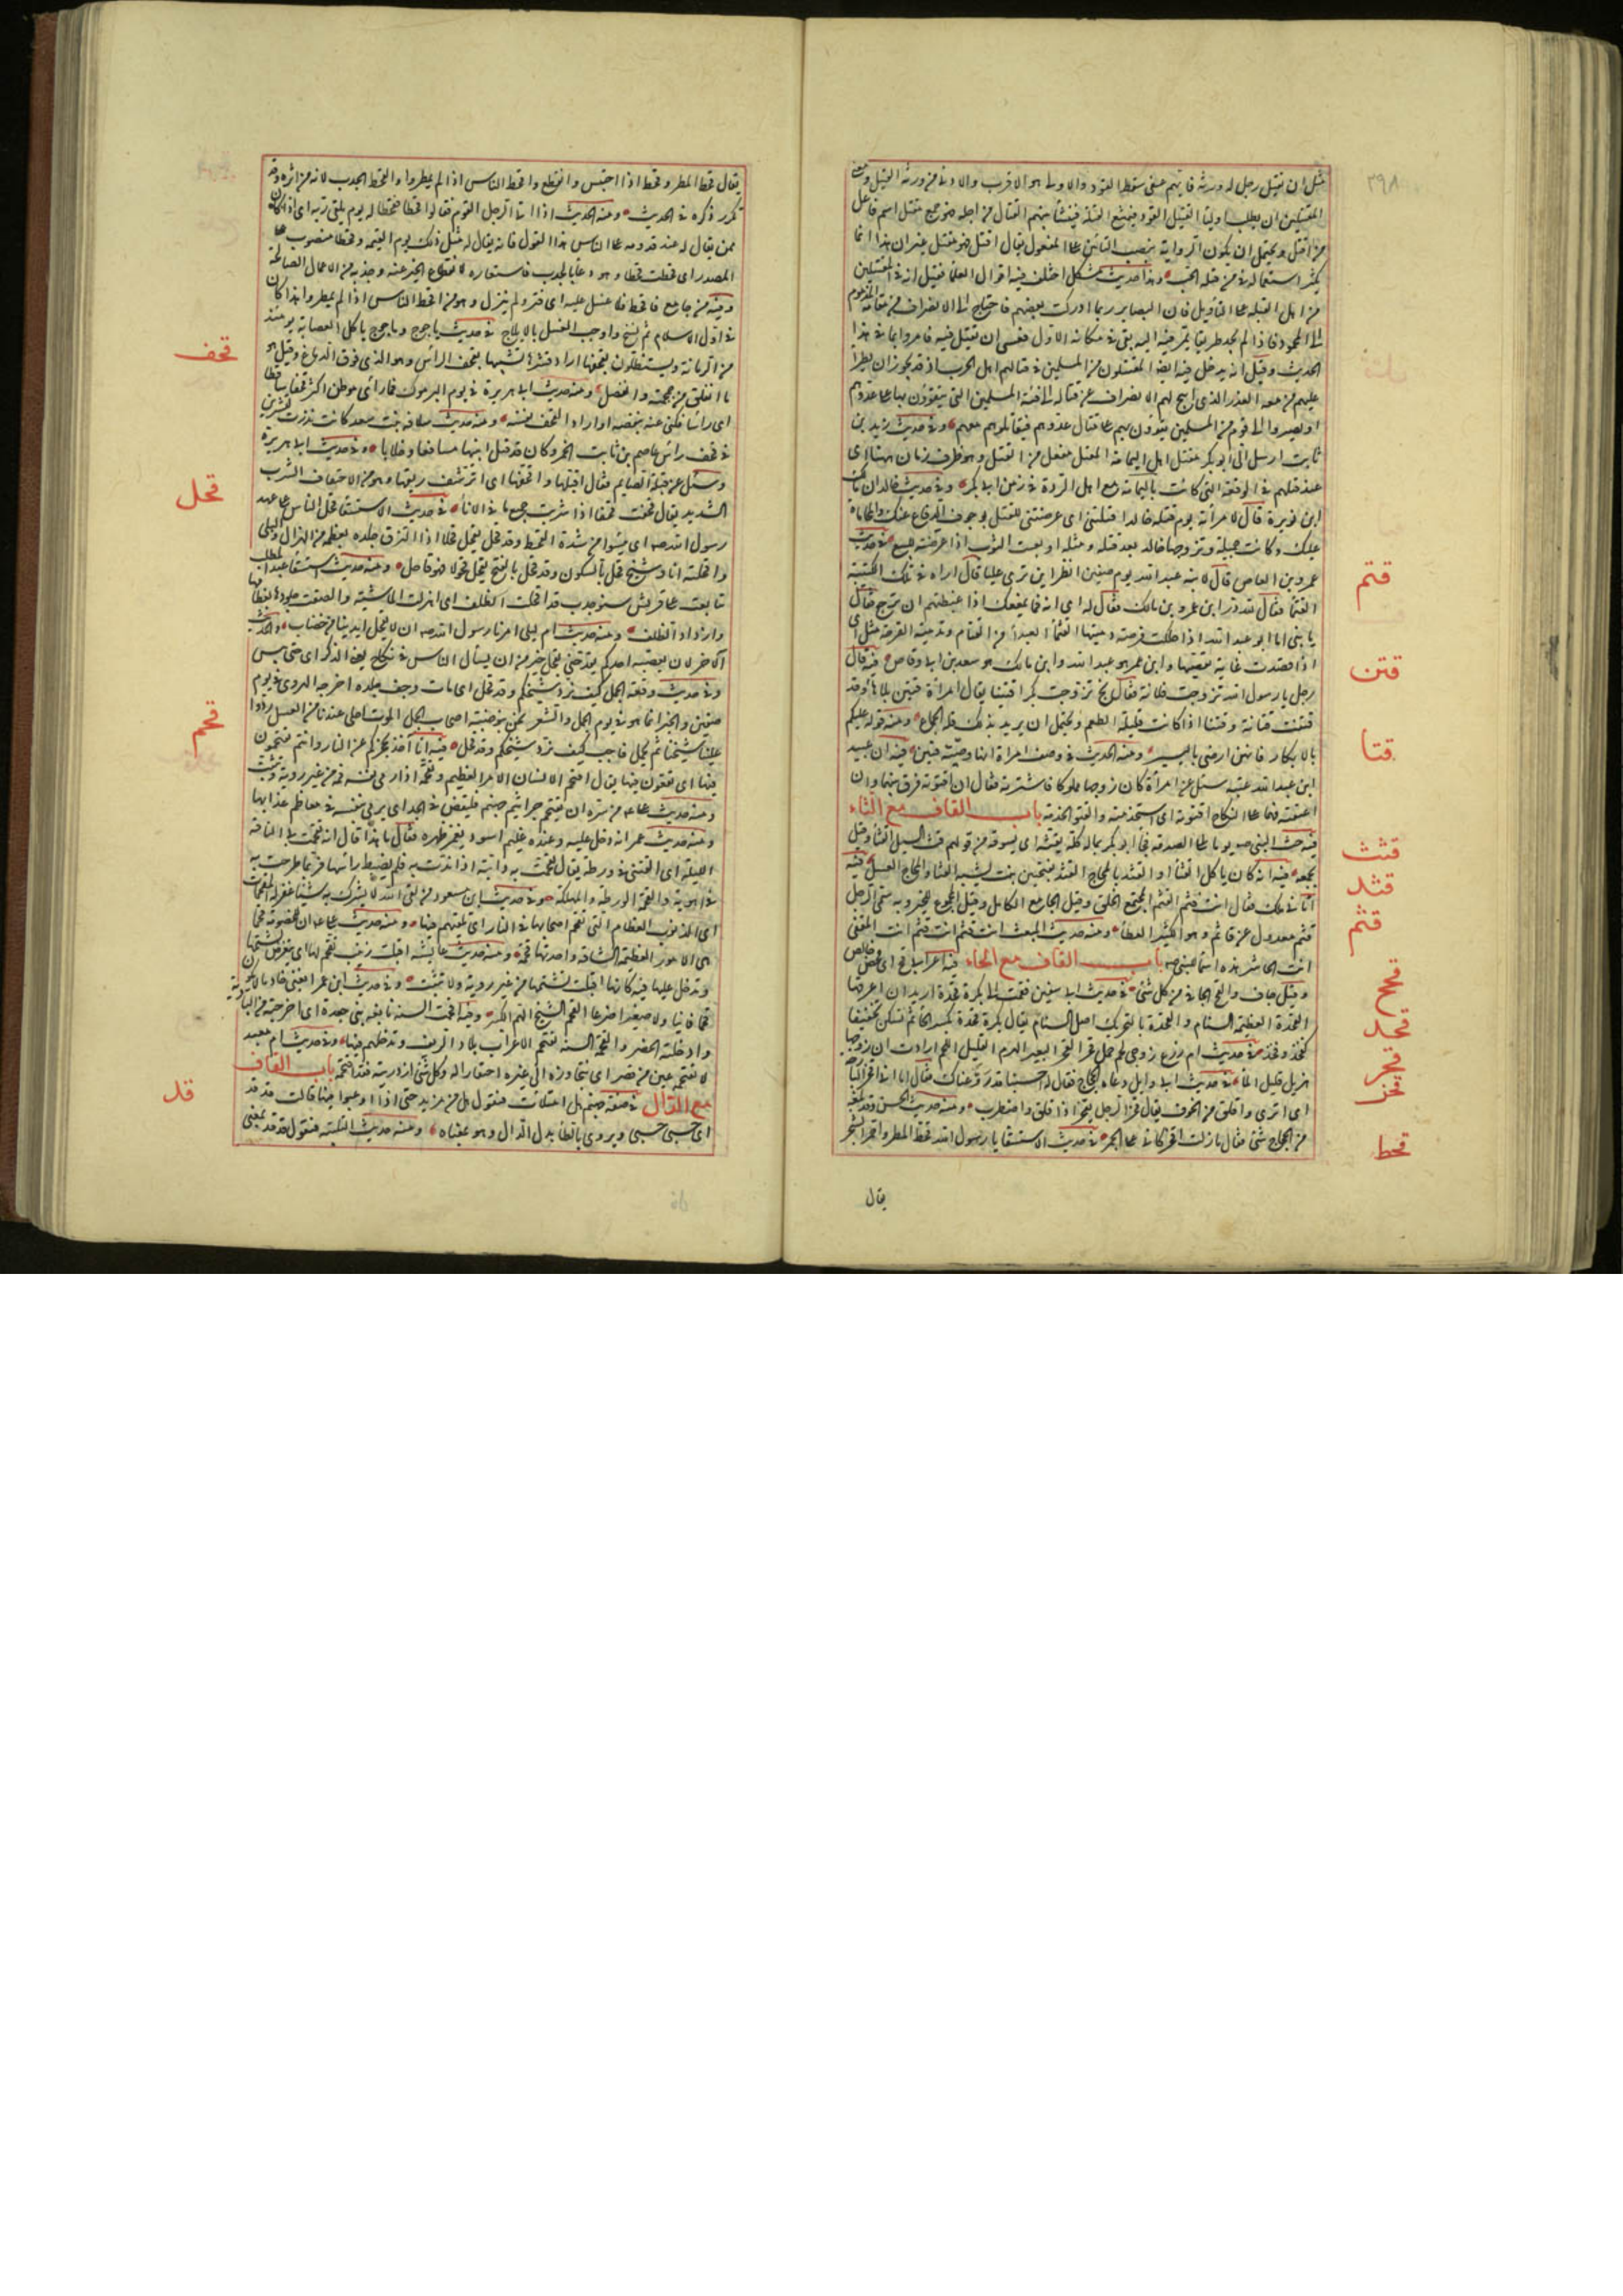 ٣٩٨
مثل ان يقتل رجل له ورثة فايهم عفى سقط القود والاولى هو الاقرب والادنى من ورثة القتيل ومعنى
المقتتلين ان يطلب اولياء القتيل القود فيمتنع القتلة فينشأ بينهم القتال من اجله فهو جمع مقتتل اسم فاعل
من اقتتل ويحتمل ان يكون الرواية بنصب التائين على المفعول يقال اقتتل فهو مقتتل غير ان هذا انما
يكثر استعماله في من قتله الحب وهذا حديث مشكل اختلف فيه اقوال العلماء فقيل انه في المقتتلين
من اهل القبلة على التأويل فان البصاير ربما ادركت بعضهم فاحتاج الى الانصراف من مقامه المذموم
الى المحمود فاذا لم يجد طريقا يمر فيه اليه بقي في مكانه الاول فعسى ان يقتل فيه فامروا بما في هذا
الحديث وقيل انه يدخل فيه ايضا المقتتلون من المسلمين في قتالهم اهل الحرب اذ قد يجوز ان يطرأ
عليهم من معه العذر الذي ابيح لهم الانصراف عن قتاله الى فئة المسلمين التي يتقوون بها على عدوهم
او يصيروا الى قوم من المسلمين يقوون بهم على قتال عدوهم فيقاتلوهم معهم وفي حديث زيد بن
ثابت ارسل الى أبو بكر مقتل اهل اليمامة المقتل مفعل من القتل وهو ظرف زمان ههنا اى
عند قتلهم في الوقعة التي كانت باليمامة مع اهل الردة في زمن ابى بكر وفي حديث خالد ان مالك
ابن نويرة قال لامرأته يوم قتله خالد اقتلتنى اى عرضتنى للقتل بوجوب الدفاع عنك والمحاماة
عليك وكانت جميلة وتزوجها خالد بعد قتله ومثله ابعت الثوب اذا عرضته للبيع في حديث
عمرو بن العاص قال لابنه عبد الله يوم صفين انظر اين ترى عليا قال اراه في تلك الكتيبة
القتماء فقال لله در ابن عمر وبن مالك فقال له اى ابه فما يمنعك اذا غبطتهم ان ترجع فقال
يا بنى انا ابو عبد الله اذا حككت قرحة دميتها القتماء الغبراء من القتام وتدمية القرحة مثل اى
اذا قصدت غاية تقصيتها وابن عمر هو عبد الله وابن مالك هو سعد بن ابى وقاص فيه قال
رجل يا رسول الله تزوجت فلانة فقال بخ تزوجت بكرا قتينا يقال امرأة قتين بلا هاء وقد
قتنت قتانة وقتنا اذا كانت قليلة الطعم ويحتمل ان يريد بذلك قلة الجماع ومنه قوله عليكم
بالابكار فانهن ارضى باليسير ومنه الحديث في وصف امراة انها وضيئة قتين فيه ان عبيد
ابن عبد الله عتبة سئل عن امرأة كان زوجها مملوكا فاشترته فقال ان اقتوته فرق بينهما وان
اعتقته فهما على النكاح اقتوته اى استخدمته والقتو الخدمة باب القاف مع الثاء
فيه حث النبي صم يوما على الصدقة فجاء ابو بكر بماله كله يقثه اى يسوقه من قولهم قث السيل الغثاء وقيل
يجمعه فيه انه كان يأكل القثاء او القثد بالمجاج القثد بفتحتين نبت يشبه القثاء والمجاج العسل فيه
اتانى ملك فقال انت قثم القثم المجتمع الخلق وقيل الجامع الكامل وقيل الجموع للخير وبه سمى الرجل
قثم معدول عن قاثم وهو الكثير العطاء ومنه حديث المبعث انت قثم انت قثم انت المقفى
انت الحاشر هذه اسماء النبى صم باب القاف مع الحاء فيه اعرابى قح اى محض خالص
وقيل جاف والقح الجافى من كل شئ في حديث ابى سفين فقمت الى بكرة قحدة اريد ان اعرقبها
القحدة العظيمة السنام والقحدة بالتحريك اصل السنام يقال بكرة قحدة بكسر الحاء ثم تسكن تخفيفا
كفخذ وفخذ في حديث ام زرع زوجى لحم جمل قحر القحر البعير الهرم القليل اللحم ارادت ان زوجها
هزيل قليل المال في حديث ابى وايل دعاه الحجاج فقال له احسبنا قد روعناك فقال اما انى قحز البارحة
اى انزى واقلق من الخوف يقال قحز الرجل يقحز اذا قلق واضطرب ومنه حديث الحسن وقد بلغه
من الحجاج شئ فقال ما زلت اقحز كانى على الجمر في حديث الاستسقاء يا رسول الله قحط المطر واحمر الشجر
يقال
قتم
قتن
قتا
قثث
قثد
قثم
قحح
قحد
قحر
قحز
قحط
يقال قحط المطر وقحط اذا احتبس وانقطع واقحط الناس اذا لم يمطروا والقحط الجدب لانه من اثره وقد
تكرر ذكره في الحديث ومنه الحديث اذا اتى الرجل القوم فقالوا قحطا فقحطا له يوم يلقى ربه اى اذا كان
ممن يقال له عند قدومه على الناس هذا القول فانه يقال له مثل ذلك يوم القيمة وقحطا منصوب على
المصدر اى قحطت قحطا وهو دعاء بالجدب فاستعاره لانقطاع الخير عنه وجدبه من الاعمال الصالحة
وفيه من جامع فاقحط فلا غسل عليه اى فتر ولم ينزل وهو من اقحط الناس اذا لم يمطروا وهذا كان
في اول الاسلام ثم نسخ واوجب الغسل بالايلاج في حديث ياجوج وماجوج ياكل العصابة يومئذ
من الرمانة ويستظلون بقحفها اراد قشرها تشبيها بقحف الراس وهو الذى فوق الدماغ وقيل هو
ما انفلق من جمجمته وانفصل ومنه حديث ابى هريرة في يوم اليرموك فما رأى موطن اكثر قحفا ساقطا
اى راسا فكنى عنه ببعضه او اراد القحف نفسه ومنه حديث سلافة بنت سعد كانت نذرت لتشربن
في قحف راس عاصم بن ثابت الخمر وكان قد قتل ابنيها مسافعا وخلابا وفي حديث ابى هريرة
وسئل عن قبلة الصايم فقال اقبلها واقحفها اى اترشف ريقها وهو من الاقتحاف الشرب
الشديد يقال قحفت قحفا اذا شربت جميع ما في الاناء في حديث الاستسقاء قحل الناس على عهد
رسول الله صم اى يبسوا من شدة القحط وقد قحل يقحل قحلا اذا التزق جلده بعظمه من الهزال والبلى
واقحلته انا وشيخ قحل بالسكون وقد قحل بالفتح يقحل قحولا فهو قاحل ومنه حديث استسقاء عبد المطلب
تتابعت على قريش سنو جدب قد اقحلت الظلف اى اهزلت الماشية والصقت جلودها بعظامها
واراد ذات الظلف ومنه حديث ام ليلى امرنا رسول الله صم ان لا نقحل ايدينا من خضاب والحديث
الآخر لان يعصبه احدكم بقد حتى يقحل خير من ان يسأل الناس في نكاح يعنى الذكر اى حتى ييبس
وفي حديث وقعة الجمل كيف نرد شيخكم وقد قحل اى مات وجف جلده اخرجه الهروى في يوم
صفين والخبر انما هو في يوم الجمل والشعر نحن بنو ضبة اصحاب الجمل الموت احلى عندنا من العسل ردوا
علينا شيخنا ثم بجل فاجيب كيف نرد شيخكم وقد قحل فيه انا آخذ بحجزكم عن النار وانتم تقتحمون
فيها اى تقعون فيها يقال اقتحم الانسان الامر العظيم وتقحمه اذا رمى نفسه فيه من غير روية وتثبت
ومنه حديث على من سره ان يتقحم جراثيم جهنم فليقض في الجد اى يرمى بنفسه في معاظم عذابها
ومنه حديث عمر انه دخل عليه وعنده غليم اسود يغمز ظهره فقال ما هذا قال انه تقحمت بى الناقة
الليلة اى القتنى في ورطة يقال تقحمت به دابته اذا ندت به فلم يضبط راسها فربما طرحت به
في اهوية والقحمة الورطة والمهلكة وفي حديث ابن مسعود من لقى الله لا يشرك به شيئا غفر له المقحمات
اى الذنوب العظام التى تقحم اصحابها في النار اى تلقيهم فيها ومنه حديث على ان للخصومة قحما
هى الامور العظيمة الشاقة واحدتها قحمة ومنه حديث عايشة اقبلت زينب تقحم لها اى تتعرض لشتمها
وتدخل عليها فيه كانها اقبلت تشتمها من غير روية ولا تثبت وفي حديث ابن عمر ابغنى خادما لا يكون
قحما فانيا ولا صغيرا ضرعا القحم الشيخ الهم الكبير وفيه اقحمت السنة نابغة بنى جعدة اى اخرجته من البادية
وادخلته الحضر والقحمة السنة تقحم الاعراب بلاد الريف وتدخلهم فيها وفي حديث ام معبد
لا تقتحمه عين من قصر اى تتجاوزه الى غيره احتقارا له وكل شئ ازدريته فقد اقتحمته باب القاف
مع الدال في صفة جهنم هل امتلات فتقول هل من مزيد حتى اذا اوعبوا فيها قالت قد قد
اى حسبى حسبى ويروى بالطاء بدل الدال وهو بمعناه ومنه حديث التلبية فنقول قد قد بمعنى
قحف
قحل
قحم
قد